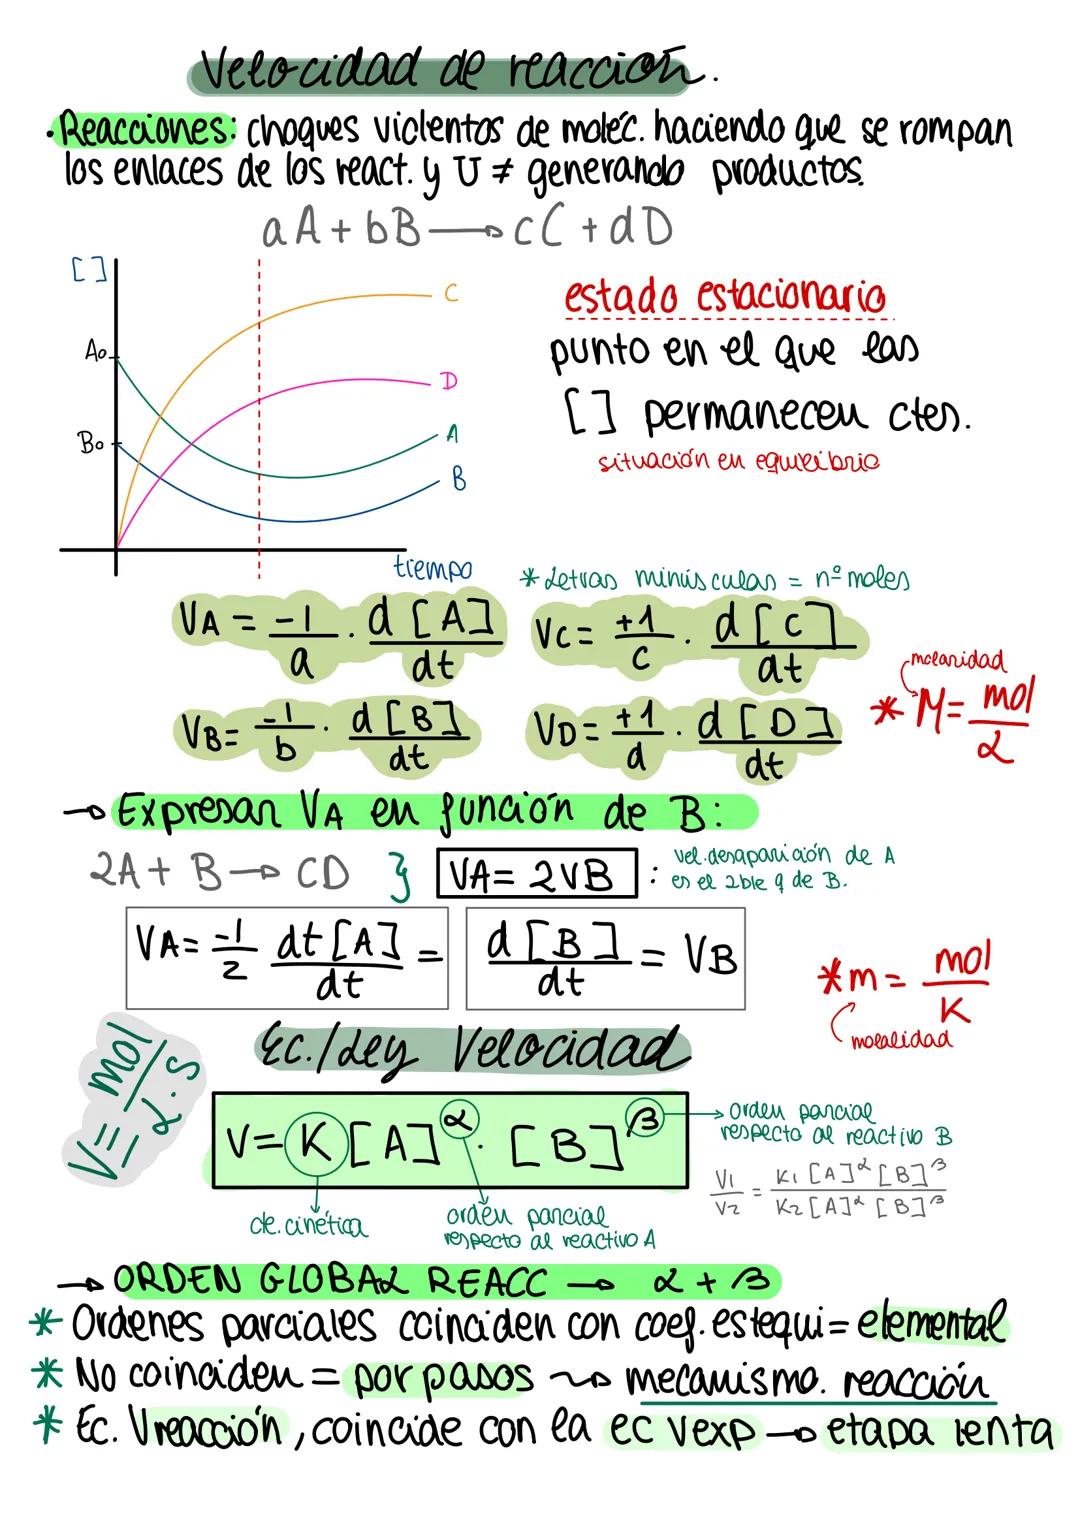 Velocidad de reacción.
· Reacciones: choques violentos de moléc. haciendo que se rompan
los enlaces de los react. y U ≠ generando productos.
aA + bB → cC + dD
[ ]
C
A₀
D
B₀
A
B
tiempo
estado estacionario
punto en el que las
[ ] permanecen ctes.
situación en equilibrio
* Letras minúsculas = nº moles
VA = -1/a · d[A]/dt
VC = +1/c · d[C]/dt
VB = -1/b · d[B]/dt
VD = +1/d · d[D]/dt
molaridad
* M = mol/L
→ Expresar VA en función de B:
2A + B → CD } VA = 2VB :
vel. desaparición de A
es el 2ble q de B.
VA = -1/2 dt[A]/dt = d[B]/dt = VB
* m = mol/K
molalidad
Ec./Ley Velocidad
V = mol/L·s
V = K[A]^α · [B]^β
orden parcial
respecto al reactivo B
V1/V2 = K1[A]^α[B]^β / K2[A]^α[B]^β
cte. cinética
orden parcial
respecto al reactivo A
→ ORDEN GLOBAL REACC → α + β
* Ordenes parciales coinciden con coef. estequi = elemental
* No coinciden = por pasos → mecanismo. reacción
* Ec. Vreacción, coincide con la ec Vexp → etapa lenta